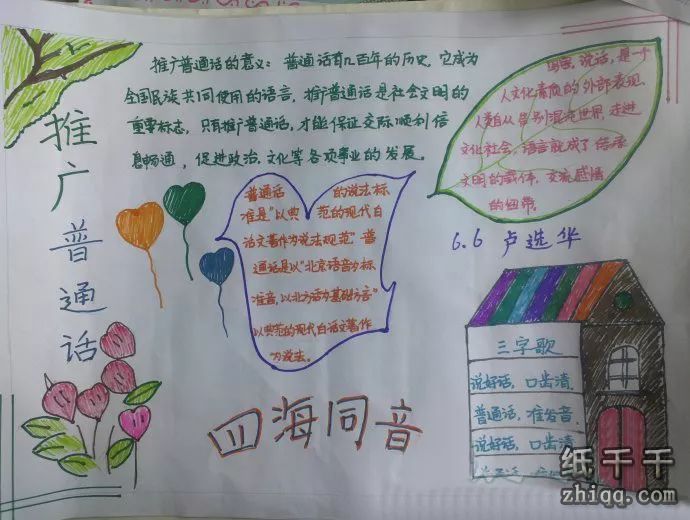 推广普通话
推广普通话的意义：普通话有几百年的历史，它成为
全国民族共同使用的语言，推广普通话是社会文明的
重要标志，只有推广普通话，才能保证交际顺利信
息畅通，促进政治、文化等各项事业的发展。
写字，说话，是一个
人文化素质的外部表现，
人类自从告别混沌世界，走进
文化社会，语言就成了传承
文明的载体，交流感情
的纽带
6.6 卢选华
普通话 的说法标
准是"以典 范的现代白
话文著作为说法规范"普
通话是以"北京语音为标
准音，以北方话为基础方言"
以典范的现代白话文著作
为说法。
三字歌
说好话，口出清
普通话，准发音，
说好话，口出清
四海同音
纸千千
zhiqq.com